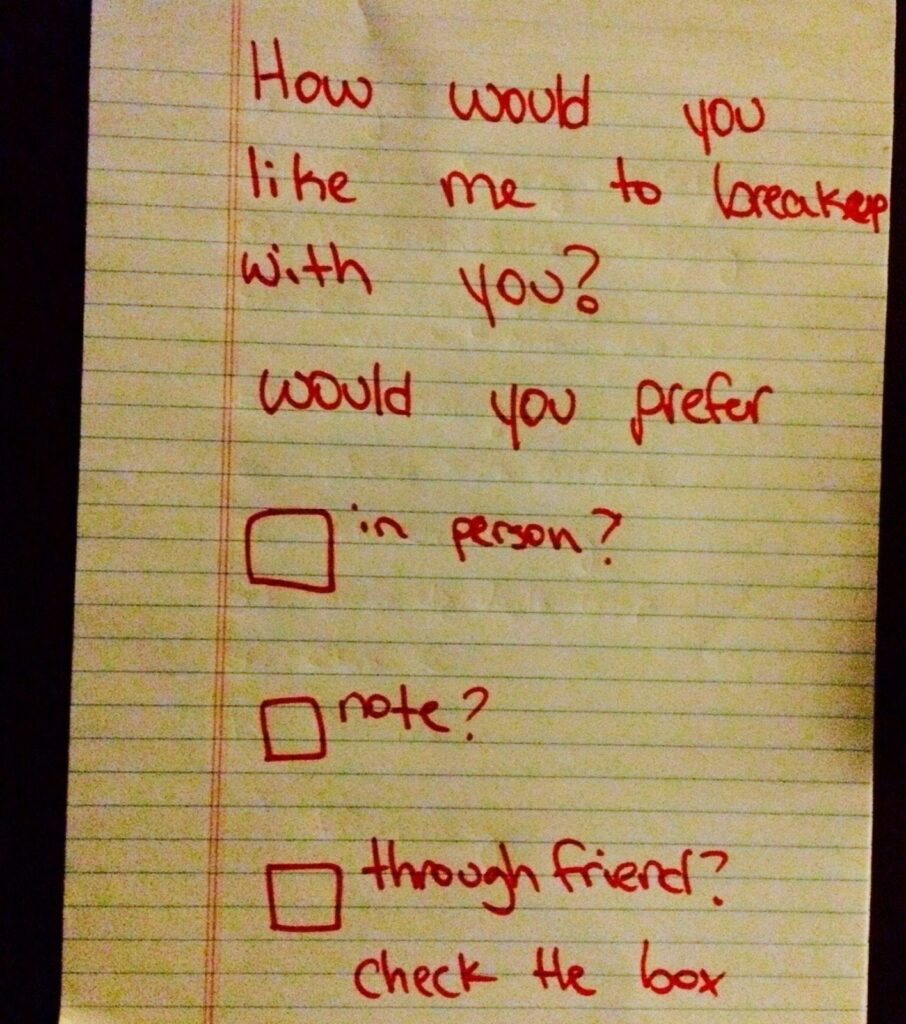 How would you
like me to breakup
with you?
would you prefer
in person?
note?
through friend?
check the box